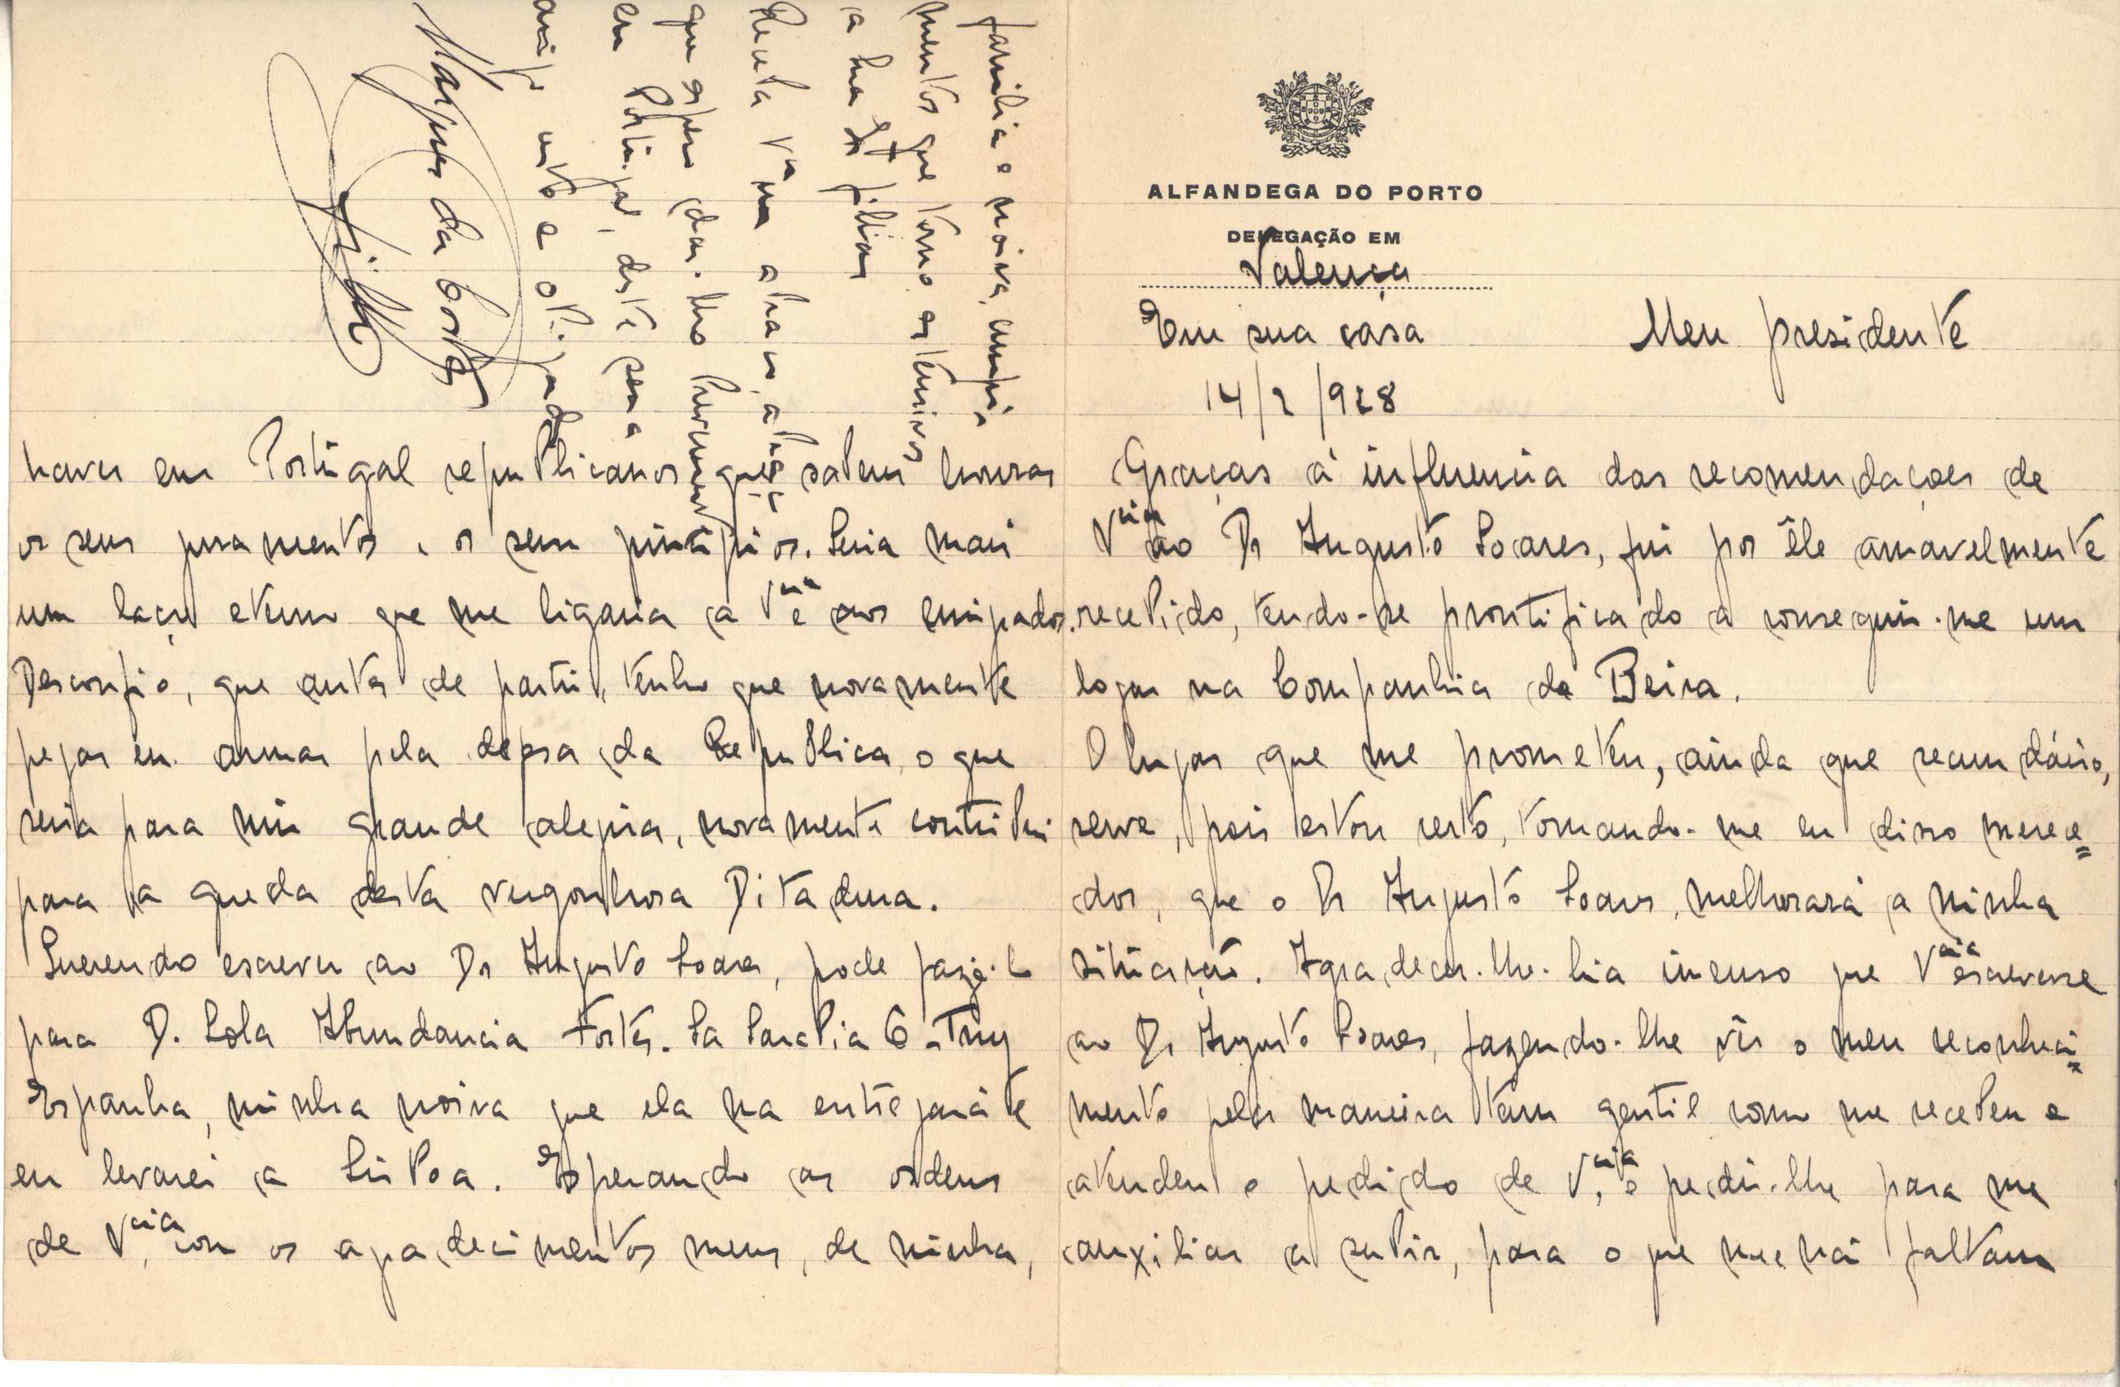 ALFANDEGA DO PORTO
DELEGAÇÃO EM
Valença
Em sua casa Meu presidente
14/2/928
Graças á influencia das recomendações de
V.cia ao Dr Augusto Soares, fui por êle amavelmente
recebido, tendo-se prontificado a conseguir-me um
logar na Companhia da Beira.
O lugar que me prometeu, ainda que secundário,
serve, pois estou certo, tornando-me eu disso merece=
dor, que o Dr Augusto Soares, melhorará a minha
situação. Agradecer-lhe-hia imenso que V.cia escrevesse
ao Dr Augusto Soares, fazendo-lhe vêr o meu reconheci=
mento pela maneira tam gentil como me recebeu e
atendeu o pedido de V.cia, e pedir-lhe para me
auxiliar a subir, para o que me não faltam
haver em Portugal republicanos que sabem honrar
os seus juramentos e os seus principios. Seria mais
um laço eterno que me ligaria a V.cia e aos emigrados.
Desconfio, que antes de partir, tenho que novamente
pegar em armas pela defesa da Republica, o que
seria para mim grande alegria, novamente contribuir
para a queda desta vergonhosa Ditadura.
Querendo escrever ao Dr Augusto Soares, pode fazê-lo
para D. Lola Abundancia Fortes. 6 - Tuy
Espanha, minha noiva que ela ma entregará e
eu levarei a Lisboa. Esperando as ordens
de V.cia, com os agradecimentos meus, de minha,
familia e noiva, cumpri-
mentos que torno extensivos
a sua Exª filha
Receba V. um abraço, abraço
que espero dar-lho brevemente
em Portugal, deste seu
amigo certo e obrigado
Marques da Costa
Filho